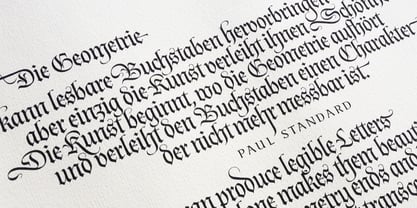 Die Geometrie
kann lesbare Buchstaben hervorbringen
aber einzig die Kunst verleiht ihnen Schönheit
Die Kunst beginnt, wo die Geometrie aufhört
und verleiht den Buchstaben einen Charakter
der nicht mehr messbar ist.
PAUL STANDARD
can produce legible Letters
makes them beau
metry ends and